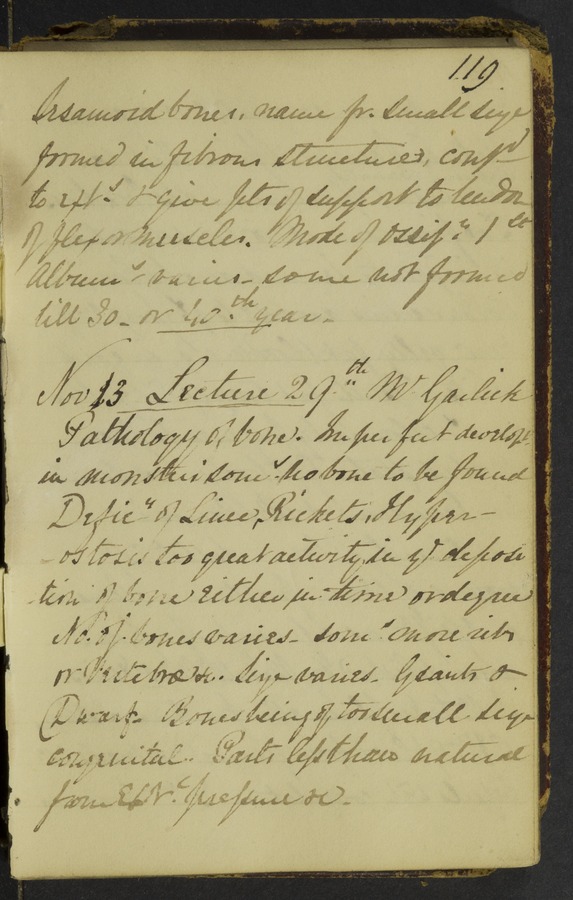 119
Sesamoid bones, name fr. small size
formed in fibrous structures, conf.d
to ext.s & give pts of support to tendon
of flexor muscles. Mode of ossif.n 1st
album.s varies - some not formed
till 30 - or 40.th year -
Nov 13 Lecture 29.th Mr Garlick
Pathology of bone. Imperfect developt.
in monsters som.s no bone to be found
Defic.y of Lime, Rickets, Hyper-
-ostosis too great activity in ye deposi
-tion of bone either in time or degree
No. of bones varies - som.s more ribs
or vertebræ &c. Size varies - Giants &
Dwarfs - Bones being of too small size
congenital. Parts less than natural
from Ext.l pressure &c -